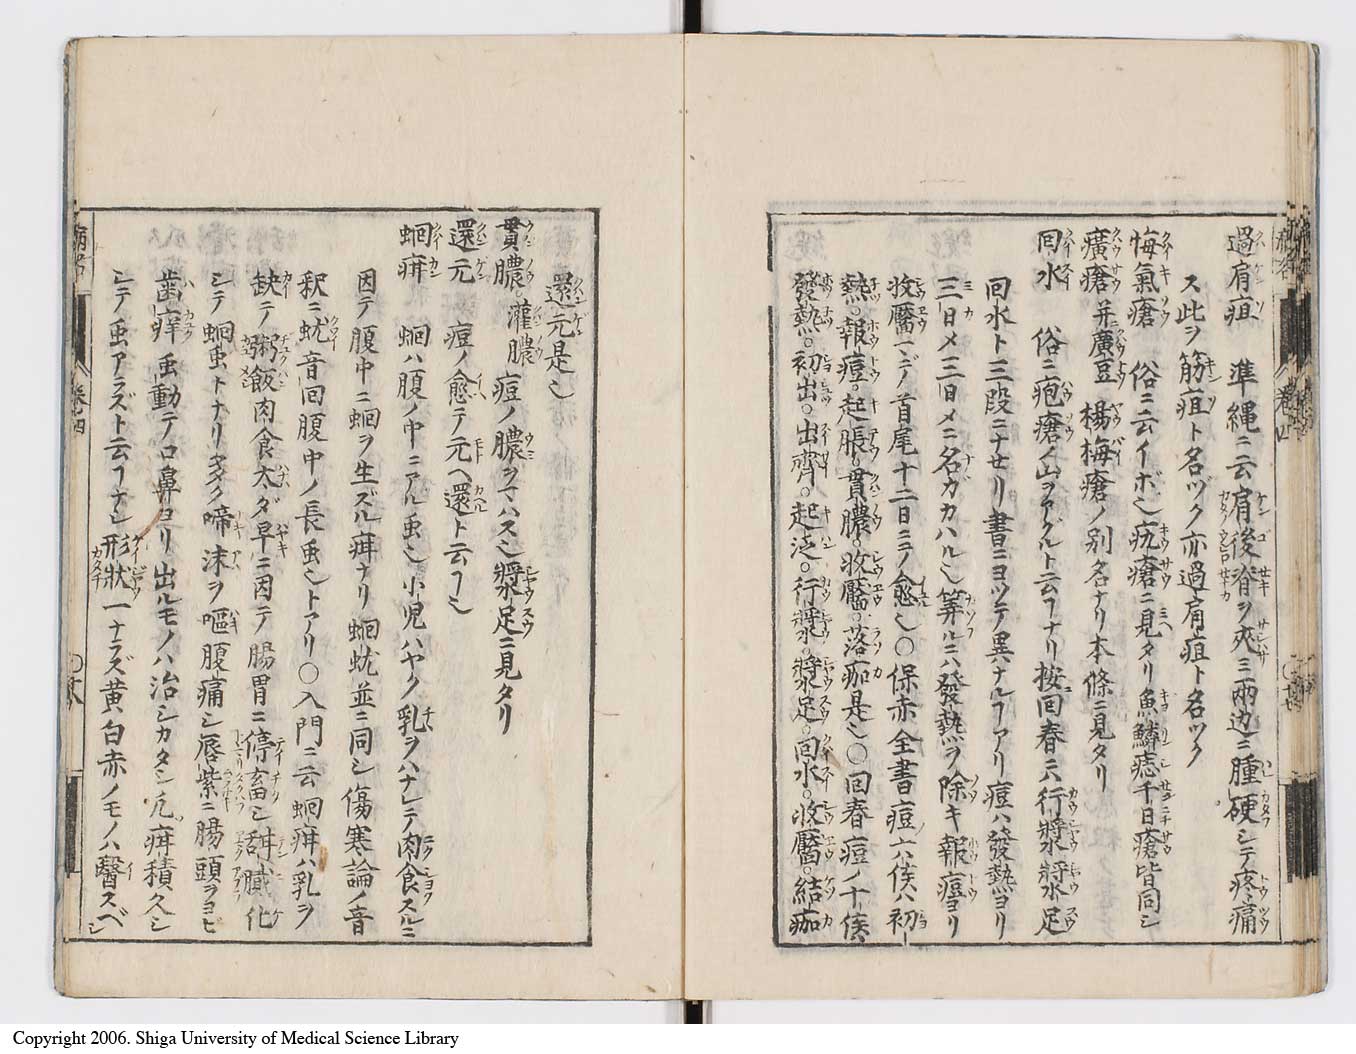 過肩疽 準縄ニ云肩後脊ヲ夾ミ兩边ニ腫硬シテ疼痛
ス此ヲ筋疽ト名ヅク亦過肩疽ト名ツク
悔氣瘡 俗ニ云イボ也疣瘡ニ見タリ魚鱗痣千日瘡皆同シ
廣瘡并廣豆 楊梅瘡ノ別名ナリ本條ニ見タリ
回水 俗ニ疱瘡ノ山ヲアグルト云フナリ按回春ニハ行漿漿足
回水ト三段ニナセリ書ニヨツテ異ハナルヿアリ痘ハ發熱ヨリ
三日メ三日メニ名ガカハル也筭ルニハ發熱ヲ除キ報痘ヨリ
收靨マデノ首尾十二日ニシテ愈也○保赤全書痘六候ハ初
熱。報痘。起脹。貫膿。收靨。落痂是也○回春痘ノ十候
發熱。初出。出齊。起泛。行漿。漿足。回水。收靨。結痂
還元是也
貫膿 灌膿 痘ノ膿ヲマハス也漿足ニ見タリ
還元 痘ノ愈テ元ヘ還ト云フ也
蛔疳 蛔ハ腹ノ中ニアル虫也小児ハヤク乳ヲハナレテ肉食スルニ
因テ腹中ニ蛔ヲ生ズル疳ナリ蛔蚘並ニ同シ傷寒論ノ音
釈ニ蚘音回腹中ノ長虫也トアリ○入門ニ云蛔疳ハ乳ヲ
缺テ粥飯肉食太ダ早ニ因テ腸胃ニ停畜シ甜膩化
シテ蛔虫トナリ多ク啼沫ヲ嘔腹痛シ唇紫ニ腸頭ヲヨビ
歯痒 虫動テ口鼻ヨリ出ルモノハ治シカタシ凡疳積久シ
シテ虫アラズト云フナシ形狀一ナラズ黄白赤ノモノハ醫スベシ
卷四